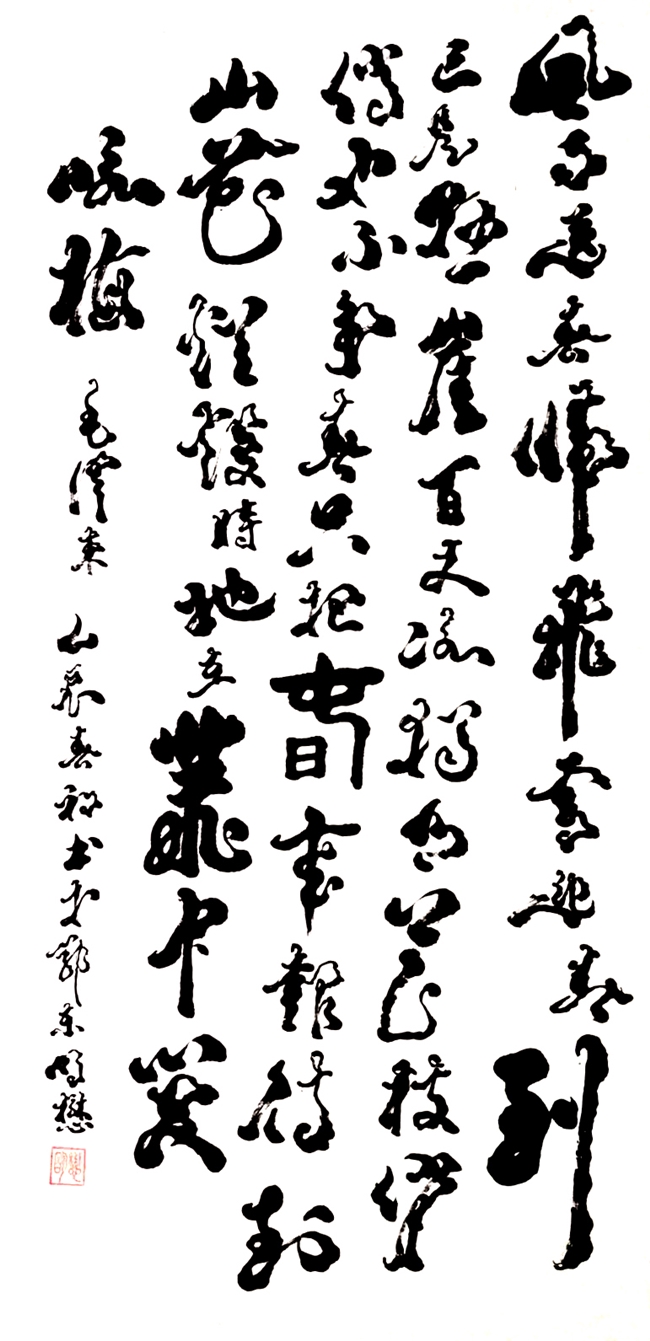 風雨送春歸飛雪迎春到
已是懸崖百丈冰猶有花枝俏
俏也不爭春只把春來報待到
山花爛漫時她在叢中笑
咏梅 毛澤東 辰春 书于鄂东